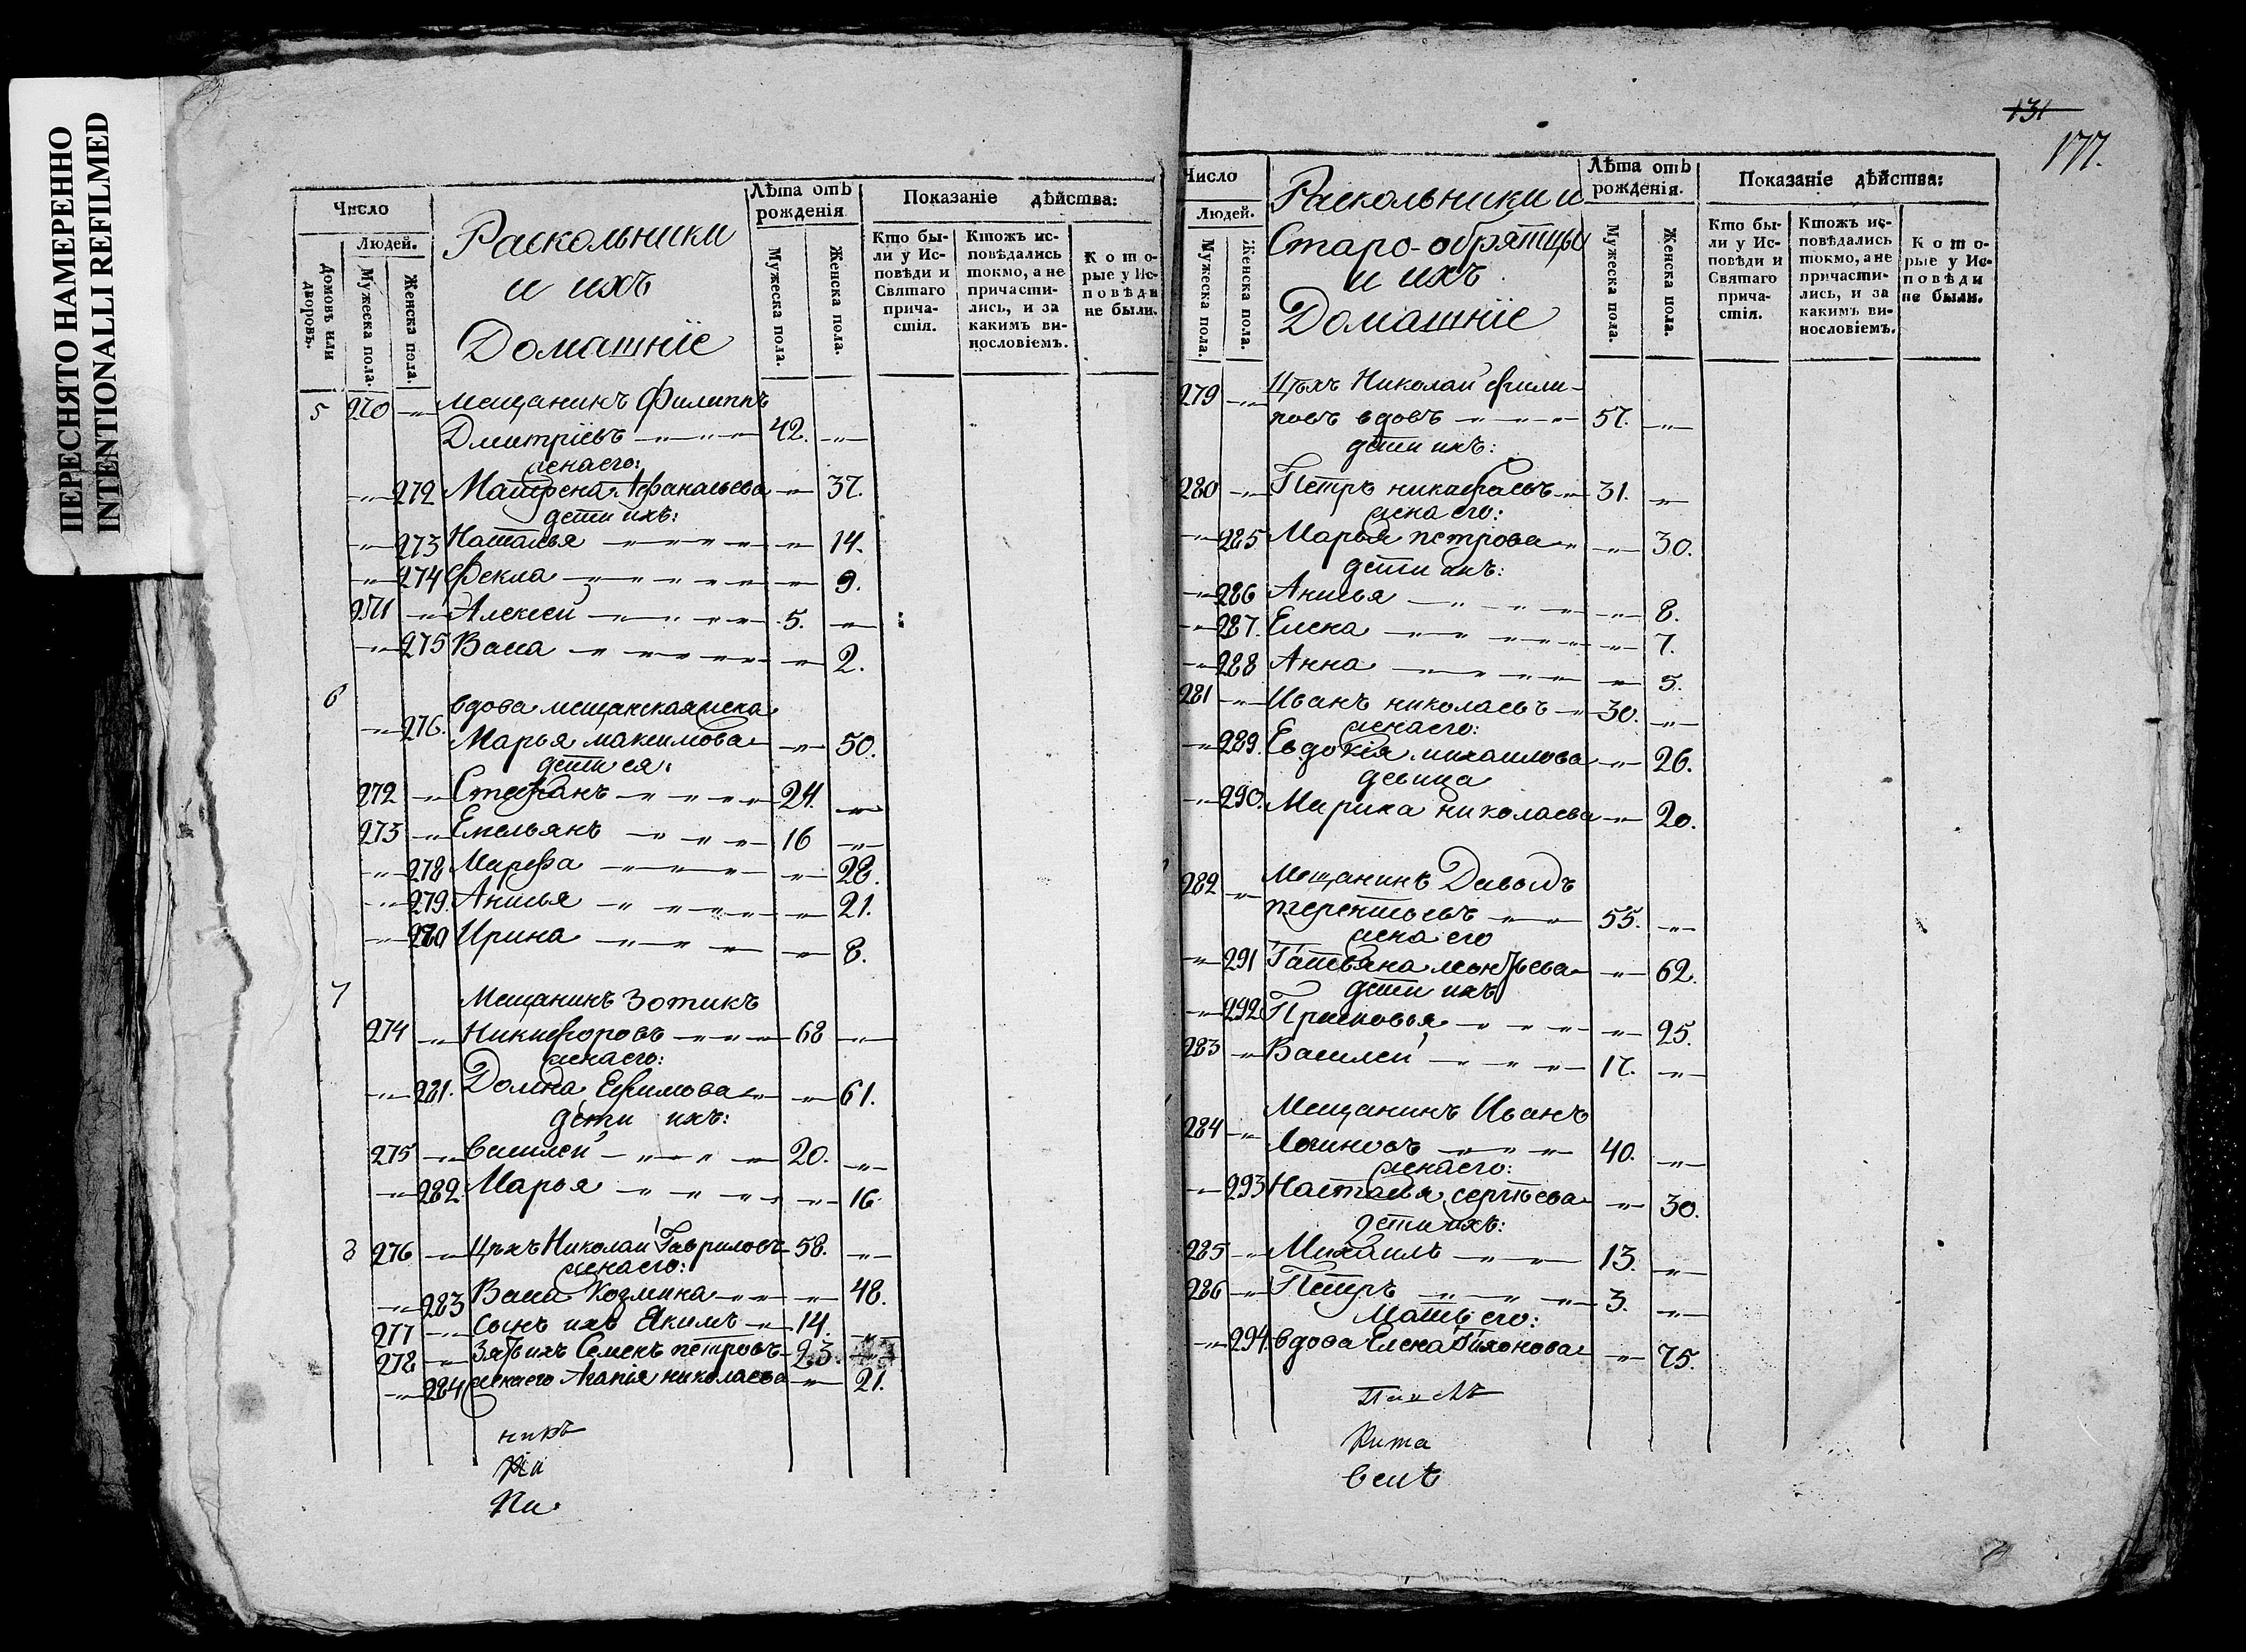 ПЕРЕСНЯТО НАМЕРЕННО
INTENTIONALLI REFILMED
Число
Людей.
Домовъ или дворовъ.
Мужеска пола.
Женска пола.
Раскольники
и ихъ
Домашніе
Лѣта отъ рожденія
Мужеска пола.
Женска пола.
Показаніе дѣйства:
Кто бы-
ли у Ис-
повѣди и
Святаго
прича-
стія.
Ктожъ ис-
повѣдались
токмо, а не
причасти-
лись, и за
какимъ ви-
нословіемъ.
Кото-
рые у Ис-
повѣди
не были.
5 270 -"- мещанинъ Филиппъ
Дмитріевъ -"-"- 42. -"-
жена его:
-"- 272 Матрена Афанасьева -"- 37.
дети ихъ:
-"- 273 Наталья -"- 14.
-"- 274 Фекла -"- 9.
271 -"- Алексей -"- 5. -"-
-"- 275 Васа -"- 2.
6 вдова мещанская жена
-"- 276. Марья максимова -"- 50.
дети ея:
272 -"- Стефанъ -"- 24. -"-
273 -"- Емельянъ -"- 16 -"-
-"- 278 Марфа -"- 28.
-"- 279. Анисья -"- 21.
-"- 280 Ирина -"- 8.
7 Мещанинъ Зотикъ
274 -"- Никифоровъ -"- 68 -"-
жена его:
-"- 281. Домна Ефимова -"- 61.
дети ихъ:
275 -"- василей -"- 20. -"-
-"- 282 Марья -"- 16
8 276 -"- Цѣхъ Николай Гавриловъ 58. -"-
жена его:
-"- 283 Васа Козмина -"- 48.
277 -"- Сынъ ихъ Якимъ -"- 14. -"-
278 -"- Зять ихъ Семенъ петровъ 23. -"-
-"- 284 жена его Агапія николаева -"- 21.
131
177.
Число
Людей.
Мужеска пола.
Женска пола.
Раскольники и
Старо-обрятцы
и ихъ
Домашніе
Лѣта отъ рожденія.
Мужеска пола.
Женска пола.
Показаніе дѣйства:
Кто бы-
ли у Ис-
повѣди и
Святаго
прича-
стія.
Ктожъ ис-
повѣдались
токмо, а не
причасти-
лись, и за
какимъ ви-
нословіемъ.
Кото-
рые у Ис-
повѣди
не были.
279 -"- Цѣхъ Николай Фили-
повъ вдовъ -"- 57. -"-
дети ихъ:
280 -"- Петръ николаевъ -"- 31. -"-
жена его:
-"- 285 Марья петрова -"- 30.
дети ихъ:
-"- 286 Анисья -"- 8.
-"- 287. Елена -"- 7.
-"- 288 Анна -"- 5.
281 -"- Иванъ николаевъ -"- 30. -"-
жена его:
-"- 289. Евдокія михаилова -"- 26.
девица
-"- 290. Марина николаева -"- 20.
282 -"- Мещанинъ Давыдъ
терентьевъ -"- 55. -"-
жена его
-"- 291 Татьяна леонтьева -"- 62.
дети ихъ
-"- 292 Прасковья -"- 25.
283 -"- Василей -"- 17. -"-
Мещанинъ Иванъ
284 -"- Логиновъ -"- 40. -"-
жена его:
-"- 293 Настасья сергѣева -"- 30.
дети ихъ:
285 -"- Михаилъ -"- 13. -"-
286 -"- Петръ -"- 3. -"-
Мать его:
-"- 294. вдова Елена Тихонова -"- 75.